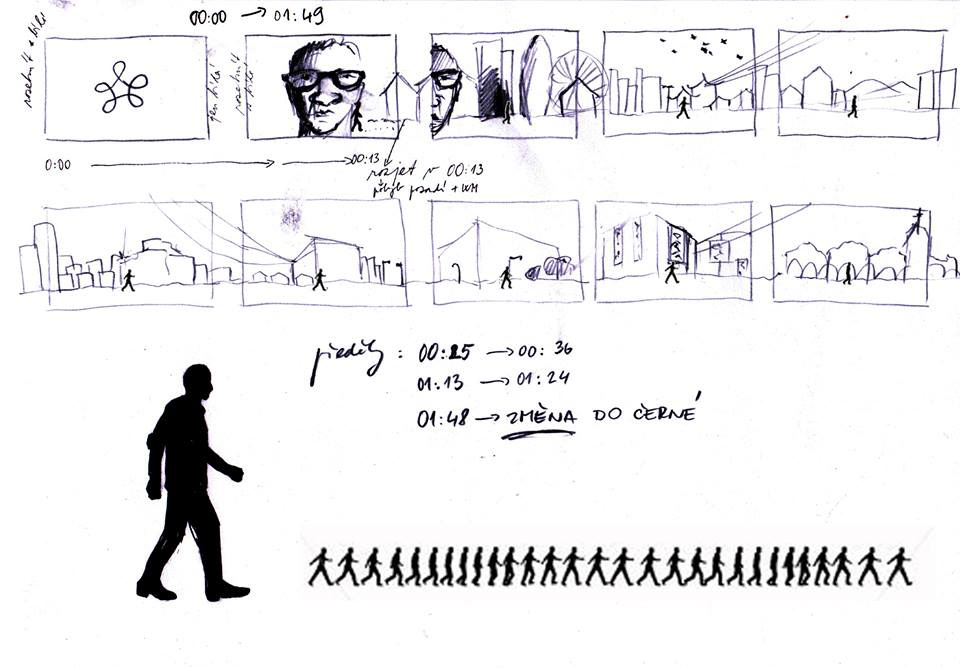 00:00 → 01:49
0:00 → → 00:13
rozjet v 00:13
pozadí + WH
předěly : 00:25 → 00:36
01:13 → 01:24
01:48 → ZMĚNA DO ČERNÉ